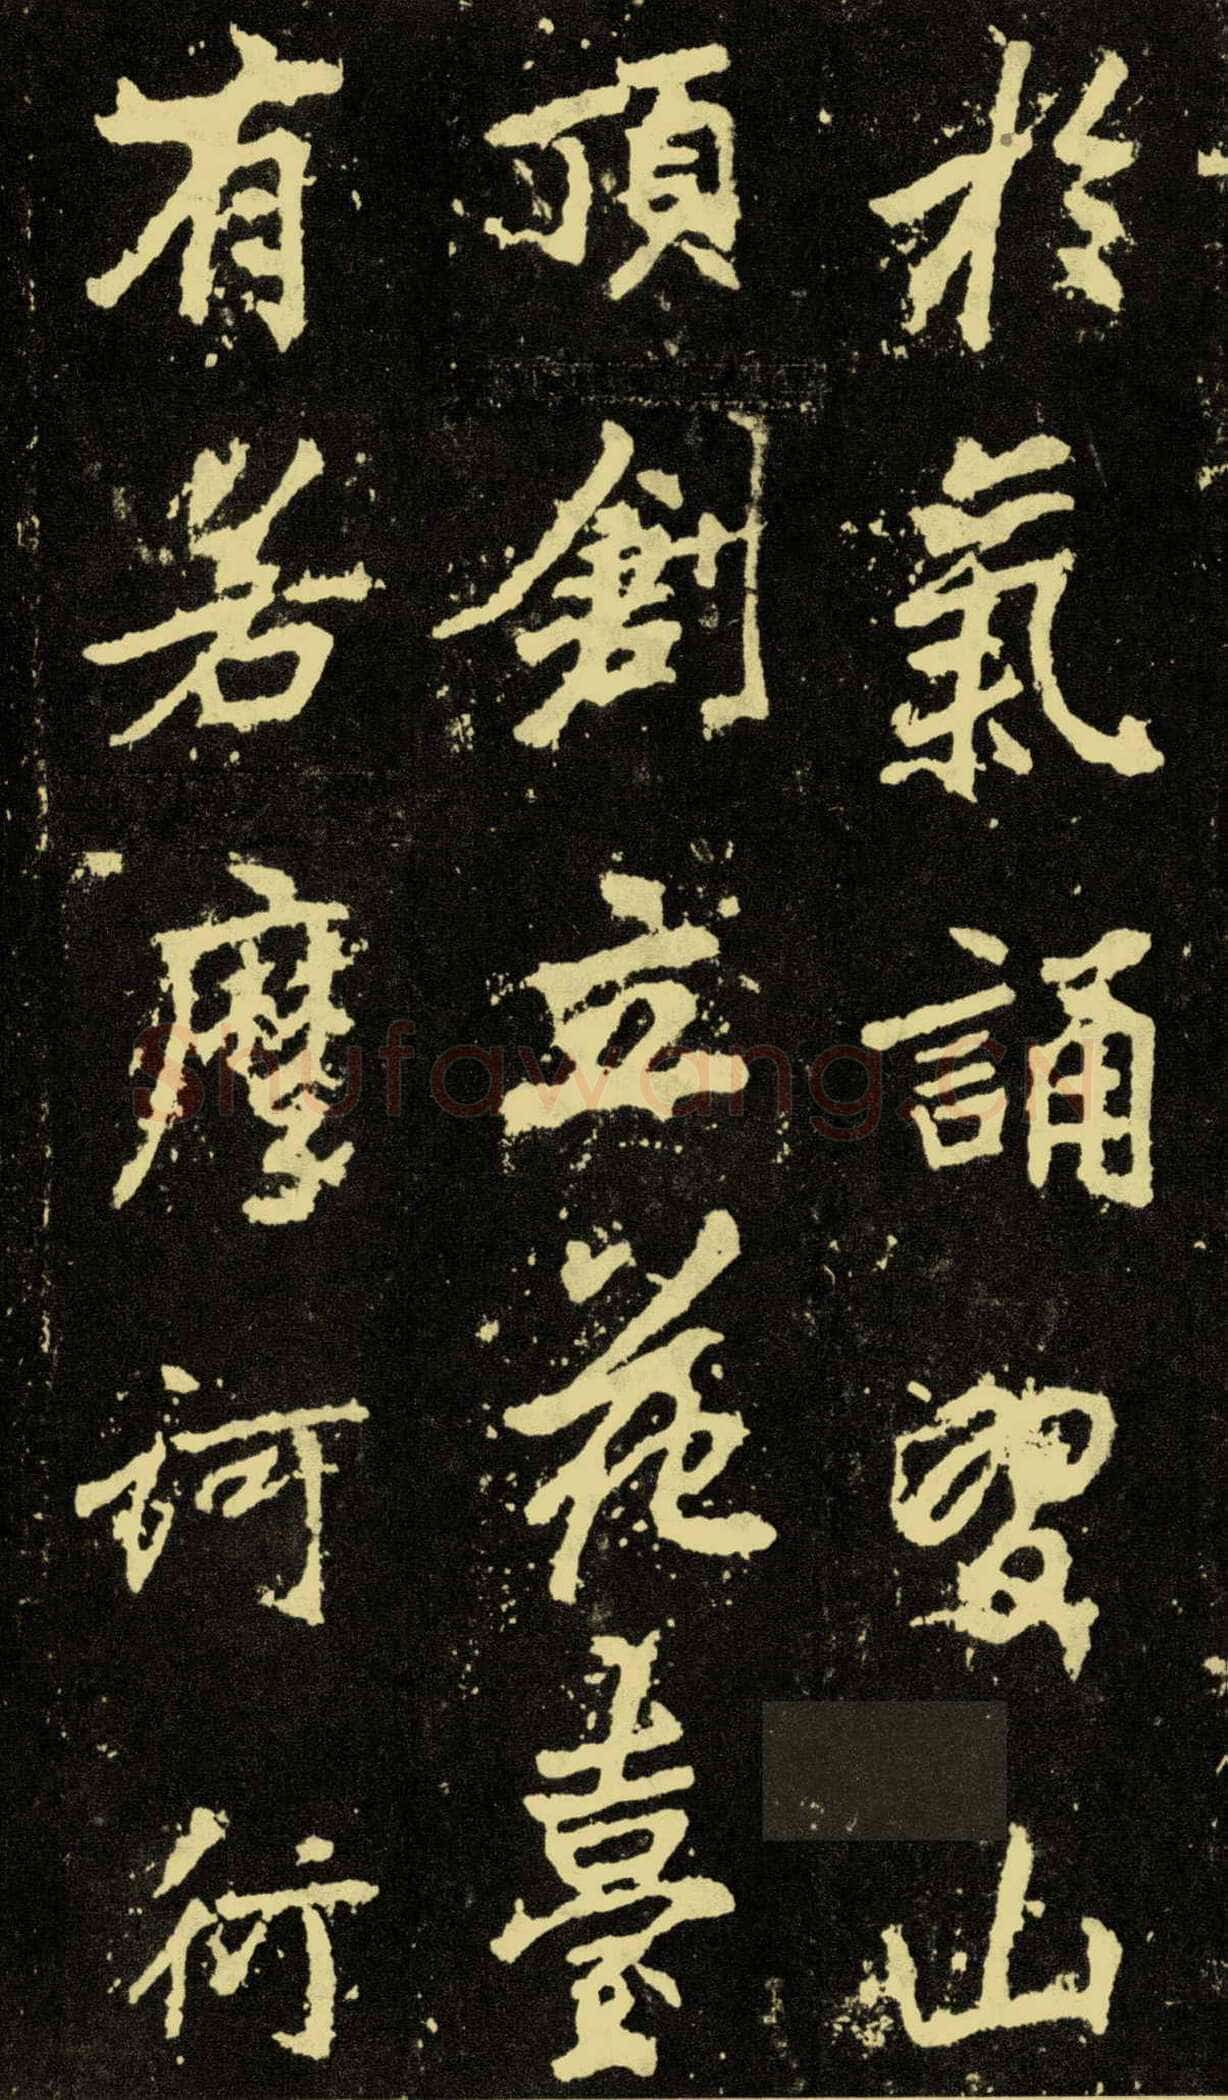 於氣誦習山
頂創立花臺
有若摩訶衍
Shufawang.cn